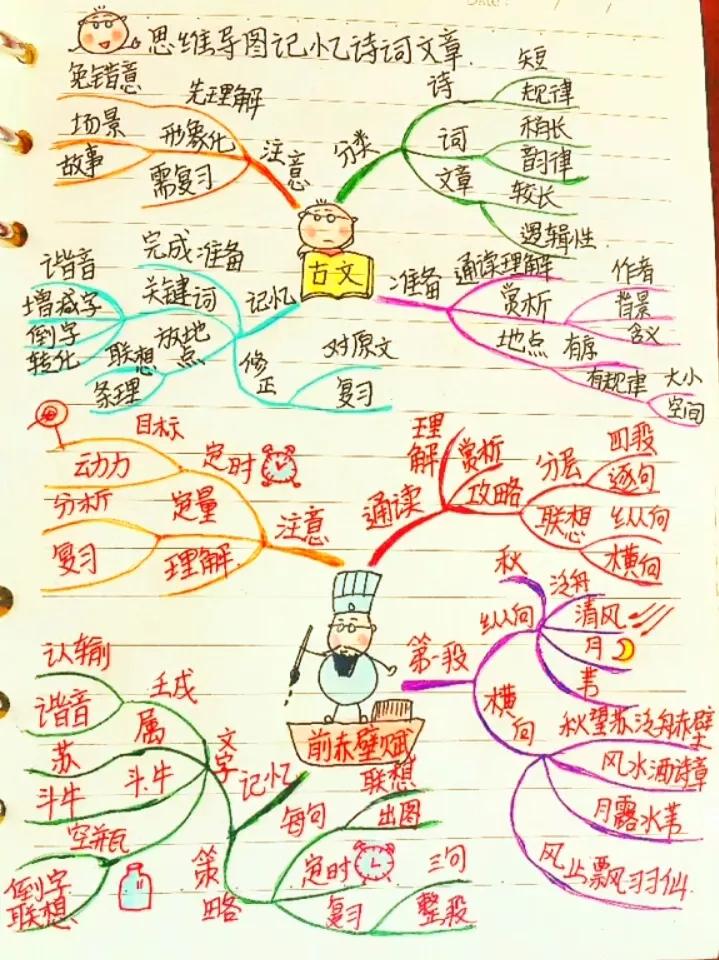 Date: / /
思维导图记忆诗词文章.
古文
分类
诗
短
规律
词
稍长
韵律
文章
较长
逻辑性
准备
通读理解
赏析
作者
背景
含义
地点
有序
有规律
大小
空间
记忆
完成准备
关键词
谐音
增减字
倒字
转化
放地点
联想
条理
修正
对原文
复习
注意
先理解
免错意
形象化
场景
故事
需复习
前赤壁赋
通读
理解
赏析
攻略
分层
四段
逐句
联想
纵向
横向
第一段
纵向
秋
泛舟
清风
月
苇
横向
秋望苏泛舟赤壁
风水酒诗章
月露水苇
风止飘羽仙
记忆
文字
壬戌
认输
谐音
属
苏
斗牛
斗牛
空瓶
倒字
联想
策略
每句
联想
出图
定时
三句
复习
整段
注意
定时
目标
动力
定量
理解
分析
复习